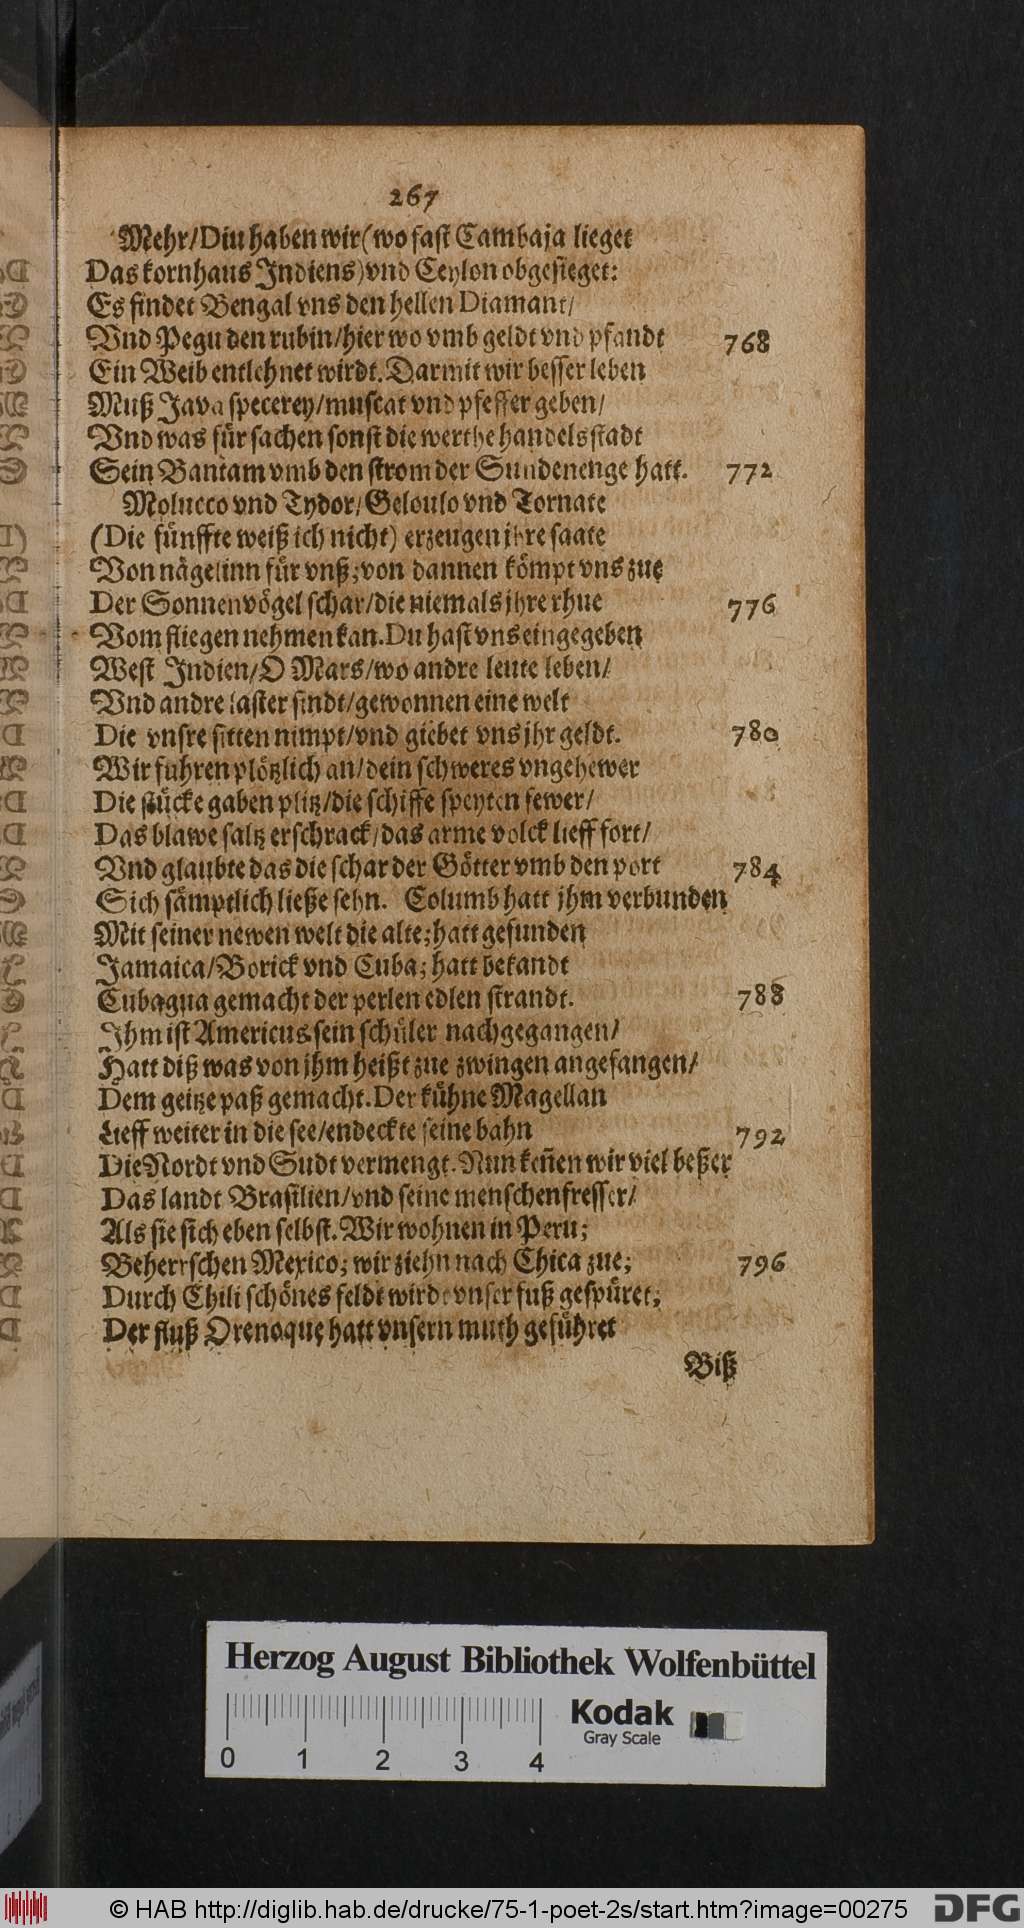 267
Mehr/Diu haben wir (wo fast Cambaja lieget
Das kornhaus Indiens) vnd Ceylon obgesieget:
Es findet Bengal vns den hellen Diamant/
Vnd Pegu den rubin/hier wo vmb geldt vnd pfandt 768
Ein Weib entlehnet wirdt. Darmit wir besser leben
Muß Java specerey/muscat vnd pfeffer geben/
Vnd was für sachen sonst die werthe handelsstadt
Sein Bantam vmb den strom der Sundenenge hatt. 772
Molucco vnd Tydor/Geloulo vnd Tornate
(Die fünffte weiß ich nicht) erzeugen jhre saate
Von nägelinn für vnß; von dannen kömpt vns zue
Der Sonnenvögel schar/die niemals jhre rhue 776
Vom fliegen nehmen kan. Du hast vns eingegeben
West Indien/O Mars/wo andre leute leben/
Vnd andre laster sindt/gewonnen eine welt
Die vnsre sitten nimpt/vnd giebet vns jhr geldt. 780
Wir fuhren plötzlich an/dein schweres vngehewer
Die stücke gaben plitz/die schiffe speyten fewer/
Das blawe saltz erschrack/das arme volck lieff fort/
Vnd glaubte das die schar der Götter vmb den port 784
Sich sämptlich ließe sehn. Columb hatt jhm verbunden
Mit seiner newen welt die alte; hatt gefunden
Jamaica/Borick vnd Cuba; hatt bekandt
Cubagua gemacht der perlen edlen strandt. 788
Ihm ist Americus sein schüler nachgegangen/
Hatt diß was von jhm heißt zue zwingen angefangen/
Dem geitze paß gemacht. Der kühne Magellan
Lieff weiter in die see/endeckte seine bahn 792
Die Nordt vnd Sudt vermengt. Nun keñen wir viel beßer
Das landt Brasilien/vnd seine menschenfresser/
Als sie sich eben selbst. Wir wohnen in Peru;
Beherrschen Mexico; wir ziehn nach Chica zue; 796
Durch Chili schönes feldt wirdt vnser fuß gespüret;
Der fluß Orenoque hatt vnsern muth geführet
Biß
Herzog August Bibliothek Wolfenbüttel
0 1 2 3 4
Kodak
Gray Scale
© HAB http://diglib.hab.de/drucke/75-1-poet-2s/start.htm?image=00275
DFG